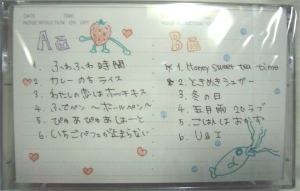 DATE TIME
NOISE REDUCTION ON OFF
A面
1. ふわふわ時間
2. カレーのちライス
3. わたしの恋はホッチキス
4. ふでペン 〜ボールペン〜
5. ぴゅあぴゅあはーと
6. いちごパフェが止まらない
B面
1. Honey sweet tea time
2. ときめきシュガー
3. 冬の日
4. 五月雨20ラブ
5. ごはんはおかず
6. U&I